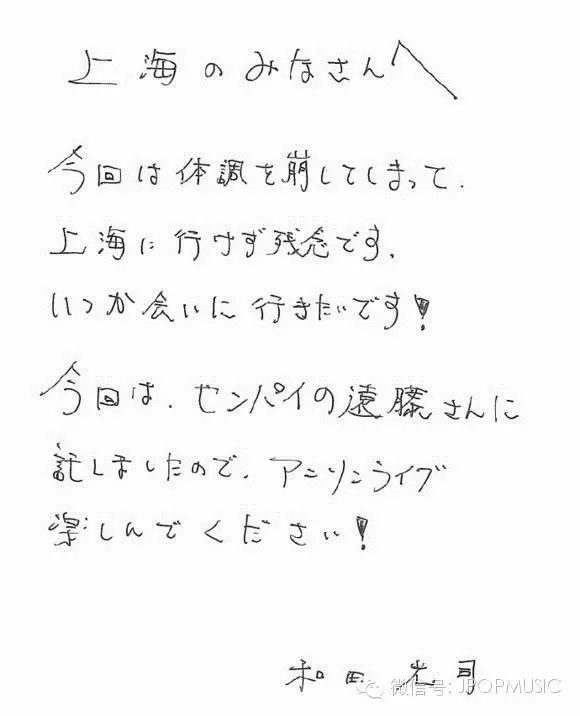 上海のみなさんへ
今回は体調を崩してしまって、
上海に行けず残念です。
いつか会いに行きたいです!
今回は、センパイの遠藤さんに
託しましたので、アニソンライブ
楽しんでください!
和田光司
微信号: JPOPMUSIC